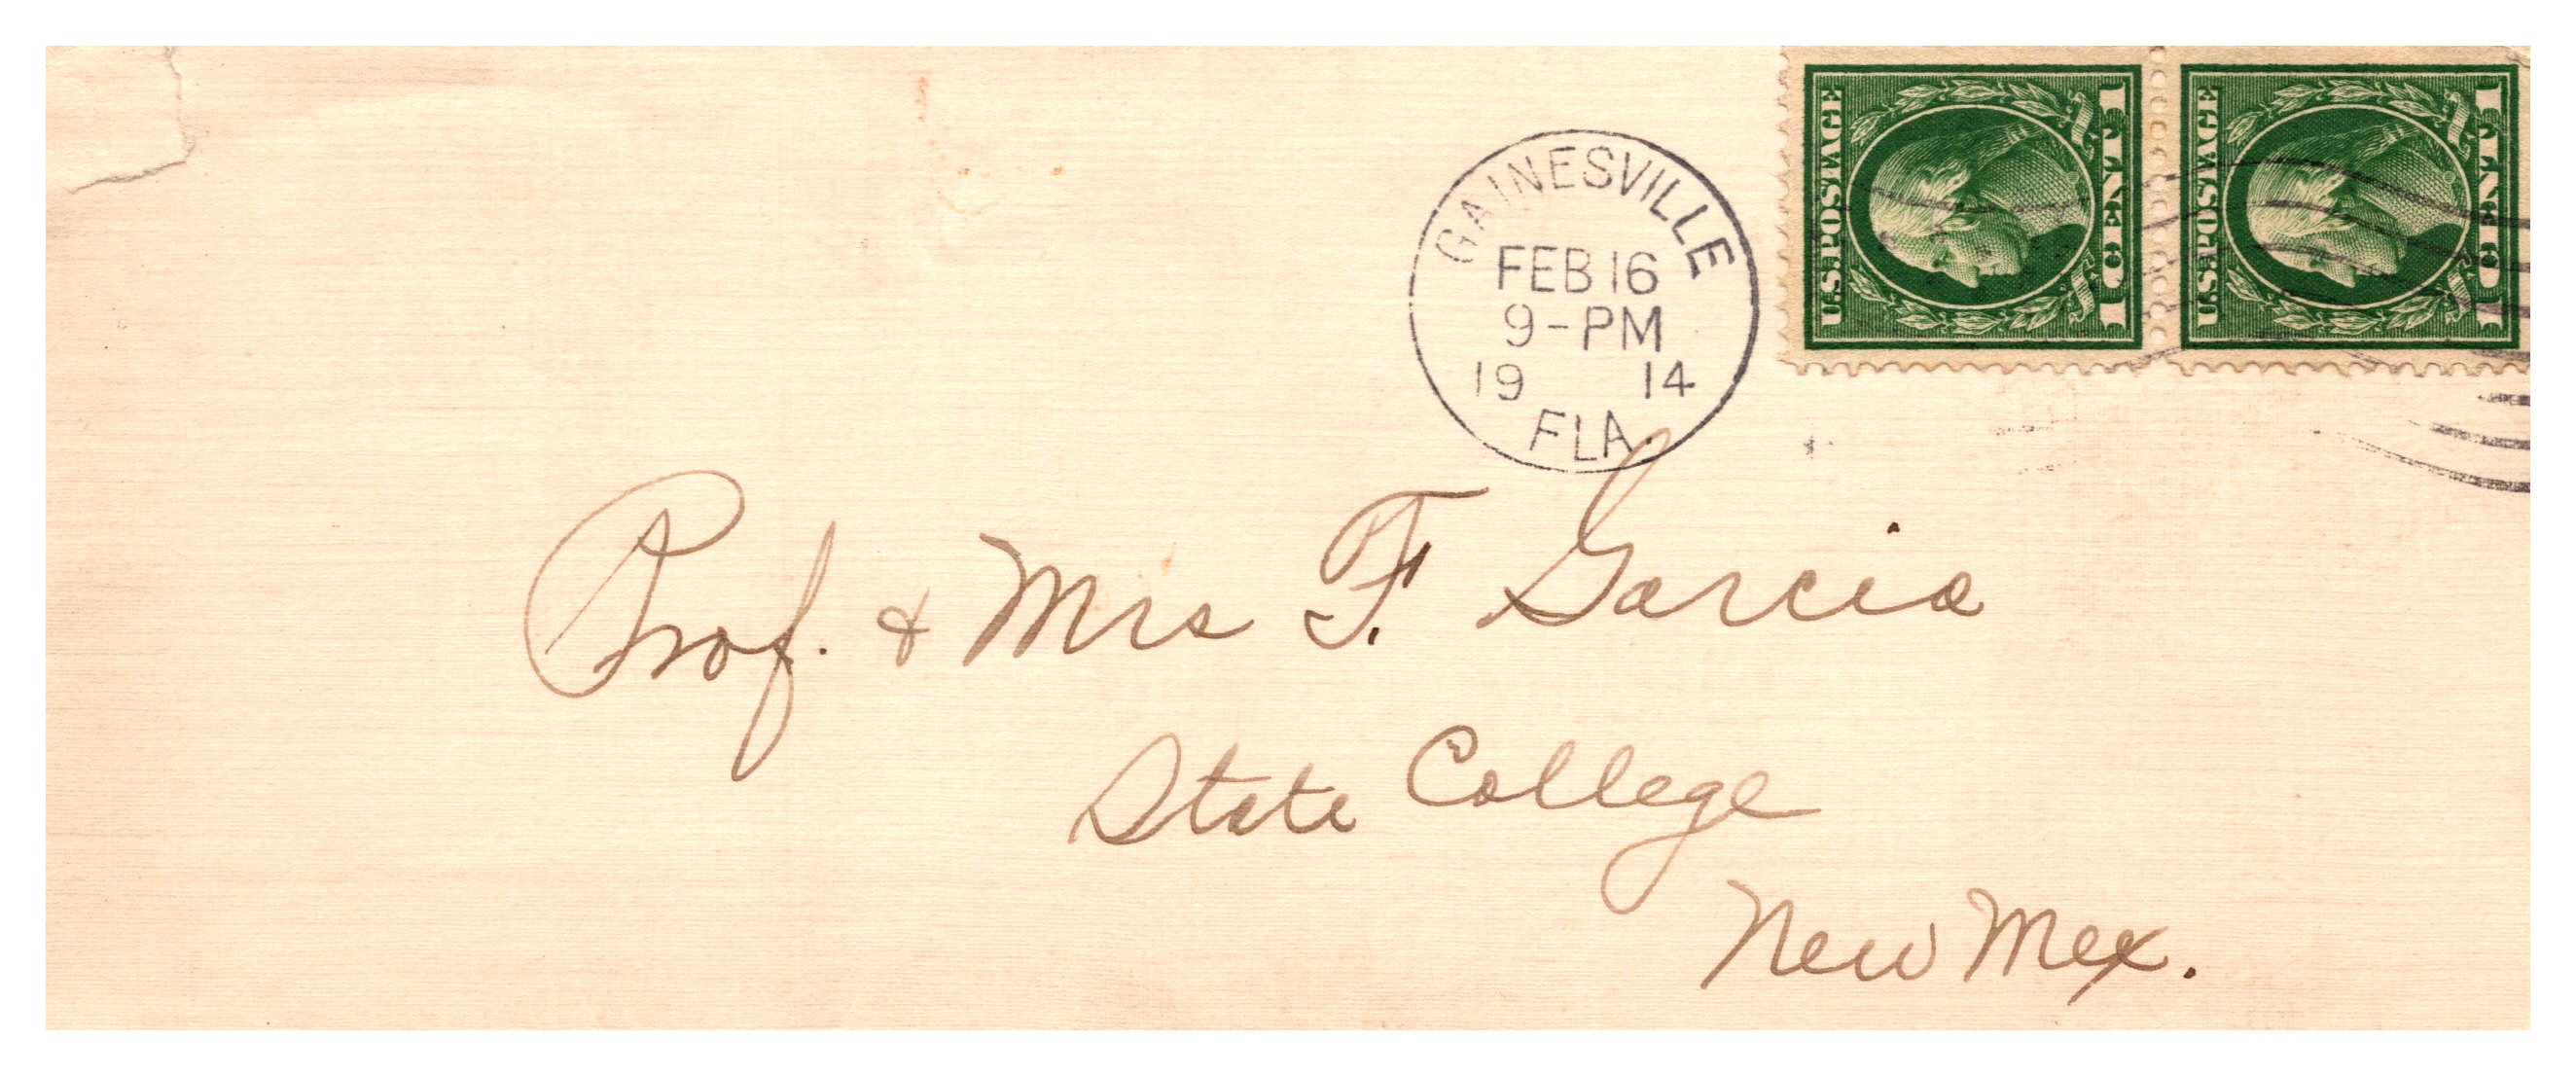 GAINESVILLE
FEB 16
9-PM
19 14
FLA.
U.S. POSTAGE
1 CENT 1
U.S. POSTAGE
1 CENT 1
Prof. & Mrs F. Garcia
State College
New Mex.